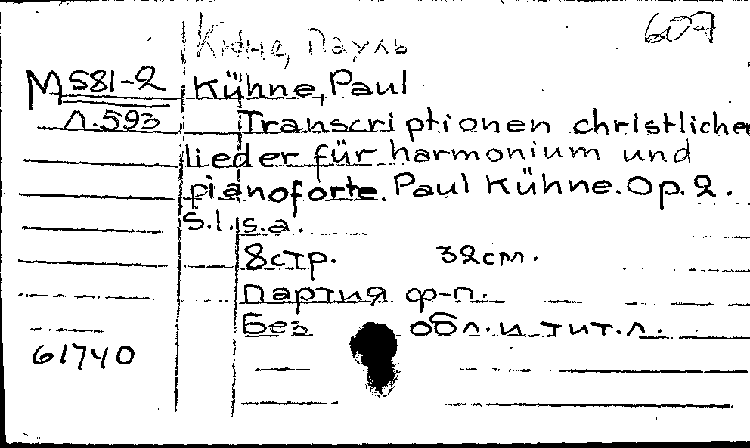 607
Кюне, Пауль
М 581-2 Kühne, Paul
Л.593 Transcriptionen christlicher
lieder für harmonium und
pianoforte. Paul Kühne. Op. 2.
S.l., s.a.
8 стр. 32 см.
Партия ф-п.
Без обл. и тит. л.
61740